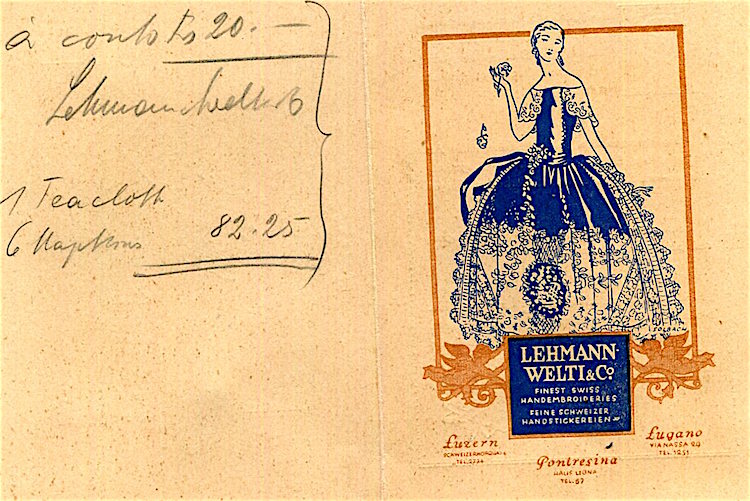 à conto Fs 20.—
Lehmann Welti & Co
1 Teacloth
6 Napkins 82.25
LEHMANN-
WELTI & Co.
FINEST SWISS
HANDEMBROIDERIES
FEINE SCHWEIZER
HANDSTICKEREIEN
Luzern
SCHWEIZERHOFQUAI 4
TEL. 2224
Pontresina
HAUS LEONA
TEL. 67
Lugano
VIA NASSA 24
TEL. 1251